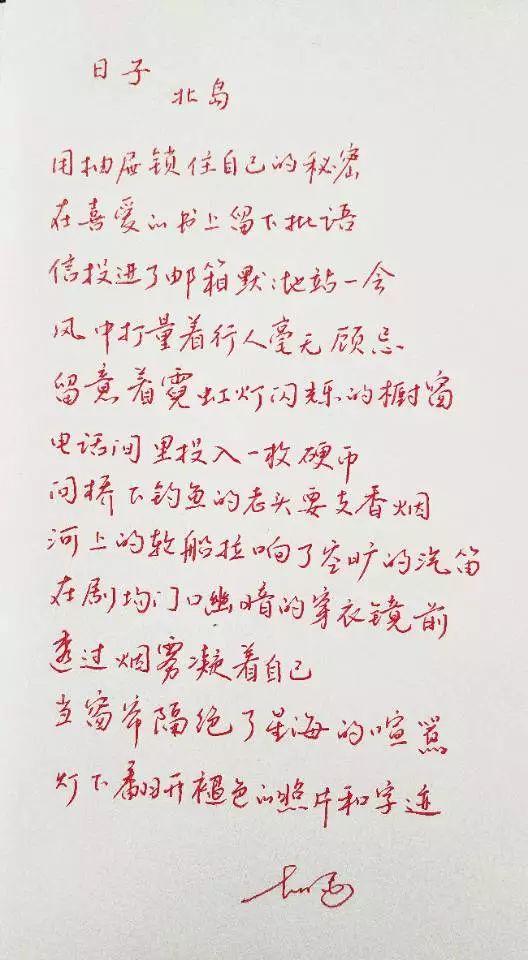 日子
北岛
用抽屉锁住自己的秘密
在喜爱的书上留下批语
信投进了邮箱默默地站一会
风中打量着行人毫无顾忌
留意着霓虹灯闪烁的橱窗
电话间里投入一枚硬币
问桥下钓鱼的老头要支香烟
河上的轮船拉响了空旷的汽笛
在剧场门口幽暗的穿衣镜前
透过烟雾凝着自己
当窗帘隔绝了星海的喧嚣
灯下翻开褪色的照片和字迹